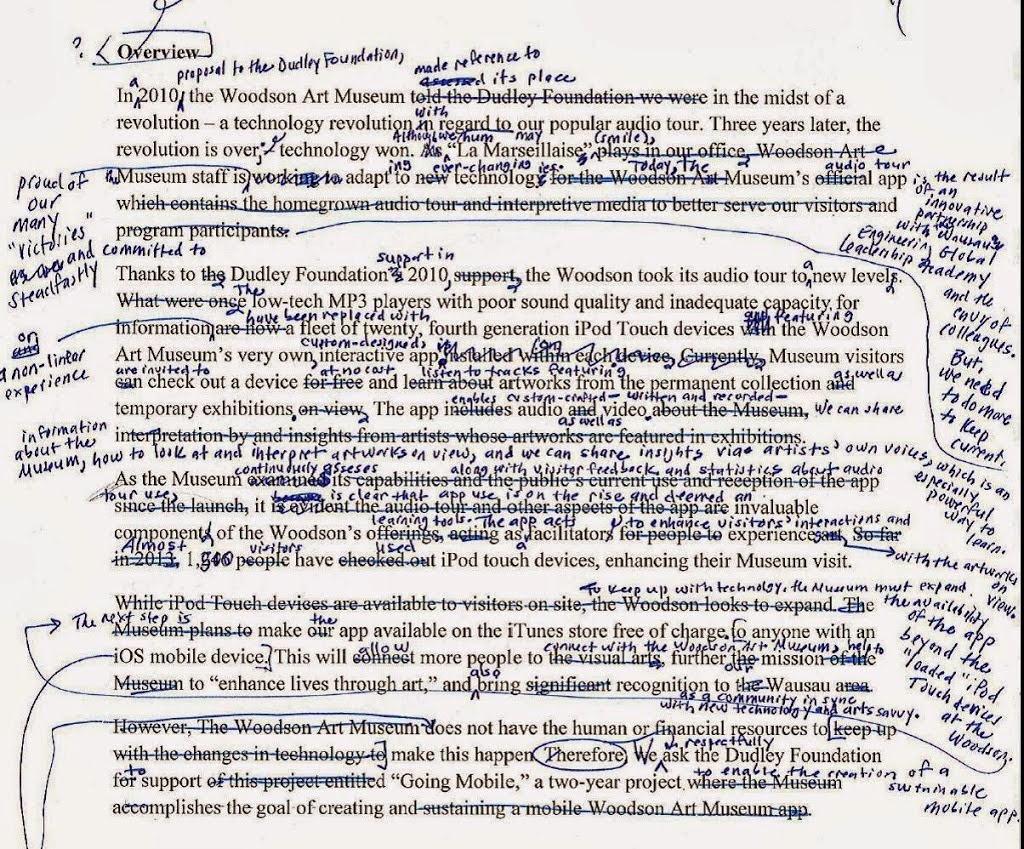 ?. Overview
a proposal to the Dudley Foundation, made reference to
assessed its place
In 2010, the Woodson Art Museum told the Dudley Foundation we were in the midst of a
with
revolution – a technology revolution in regard to our popular audio tour. Three years later, the
Although we hum may (smile),
revolution is over; technology won. As "La Marseillaise" plays in our office, Woodson Art
ing ever-changing ies. Today, the audio tour
the Museum staff is working to adapt to new technology for the Woodson Art Museum's official app is the result
which contains the homegrown audio tour and interpretive media to better serve our visitors and
program participants.
of an
innovative
partnership
with Wausau's
Engineering Global
Leadership Academy
and the
envy of
colleagues.
But,
we need
to do more
to keep
current.
proud of
our
many
"victories"
and committed to
steadfastly
support in
Thanks to the Dudley Foundation's 2010 support, the Woodson took its audio tour to a new levels.
The
What were once low-tech MP3 players with poor sound quality and inadequate capacity for
have been replaced with featuring
information are now a fleet of twenty, fourth generation iPod Touch devices with the Woodson
custom-designed,
Art Museum's very own interactive app installed within each device. Currently, Museum visitors
or
a non-linear
experience
are invited to at no cost listen to tracks featuring as well as
can check out a device for free and learn about artworks from the permanent collection and
enables custom-crafted – written and recorded –
temporary exhibitions on view. The app includes audio and video about the Museum, we can share
as well as
interpretation by and insights from artists whose artworks are featured in exhibitions.
information
about the
Museum, how to look at and interpret artworks on view, and we can share insights via artists' own voices, which is an
especially
powerful
way to
learn.
continuously assesses along with visitor feedback and statistics about audio
As the Museum examined its capabilities and the public's current use and reception of the app
tour use, is clear that app use is on the rise and deemed an
since the launch, it is evident the audio tour and other aspects of the app are invaluable
learning tools. The app acts to enhance visitors' interactions and
components of the Woodson's offerings, acting as facilitators for people to experience art. So far
with the artworks
on
view.
Almost visitors used a
in 2013, 1,500 people have checked out iPod touch devices, enhancing their Museum visit.
To keep up with technology, the Museum must expand
While iPod Touch devices are available to visitors on-site, the Woodson looks to expand. The
the availability
of the app
beyond the
"loaded" iPod
Touch devices
at the
Woodson.
The next step is the
Museum plans to make our app available on the iTunes store free of charge to anyone with an
allow connect with the Woodson Art Museum, help to
iOS mobile device. This will connect more people to the visual arts, further the mission of the
also our
Museum to "enhance lives through art," and bring significant recognition to the Wausau area.
as a community in sync
with new technology and arts savvy.
However, The Woodson Art Museum does not have the human or financial resources to keep up
respectfully
with the changes in technology to make this happen. Therefore, We ask the Dudley Foundation
to to enable the creation of a
for support of this project entitled "Going Mobile," a two-year project where the Museum
sustainable
mobile app.
accomplishes the goal of creating and sustaining a mobile Woodson Art Museum app.